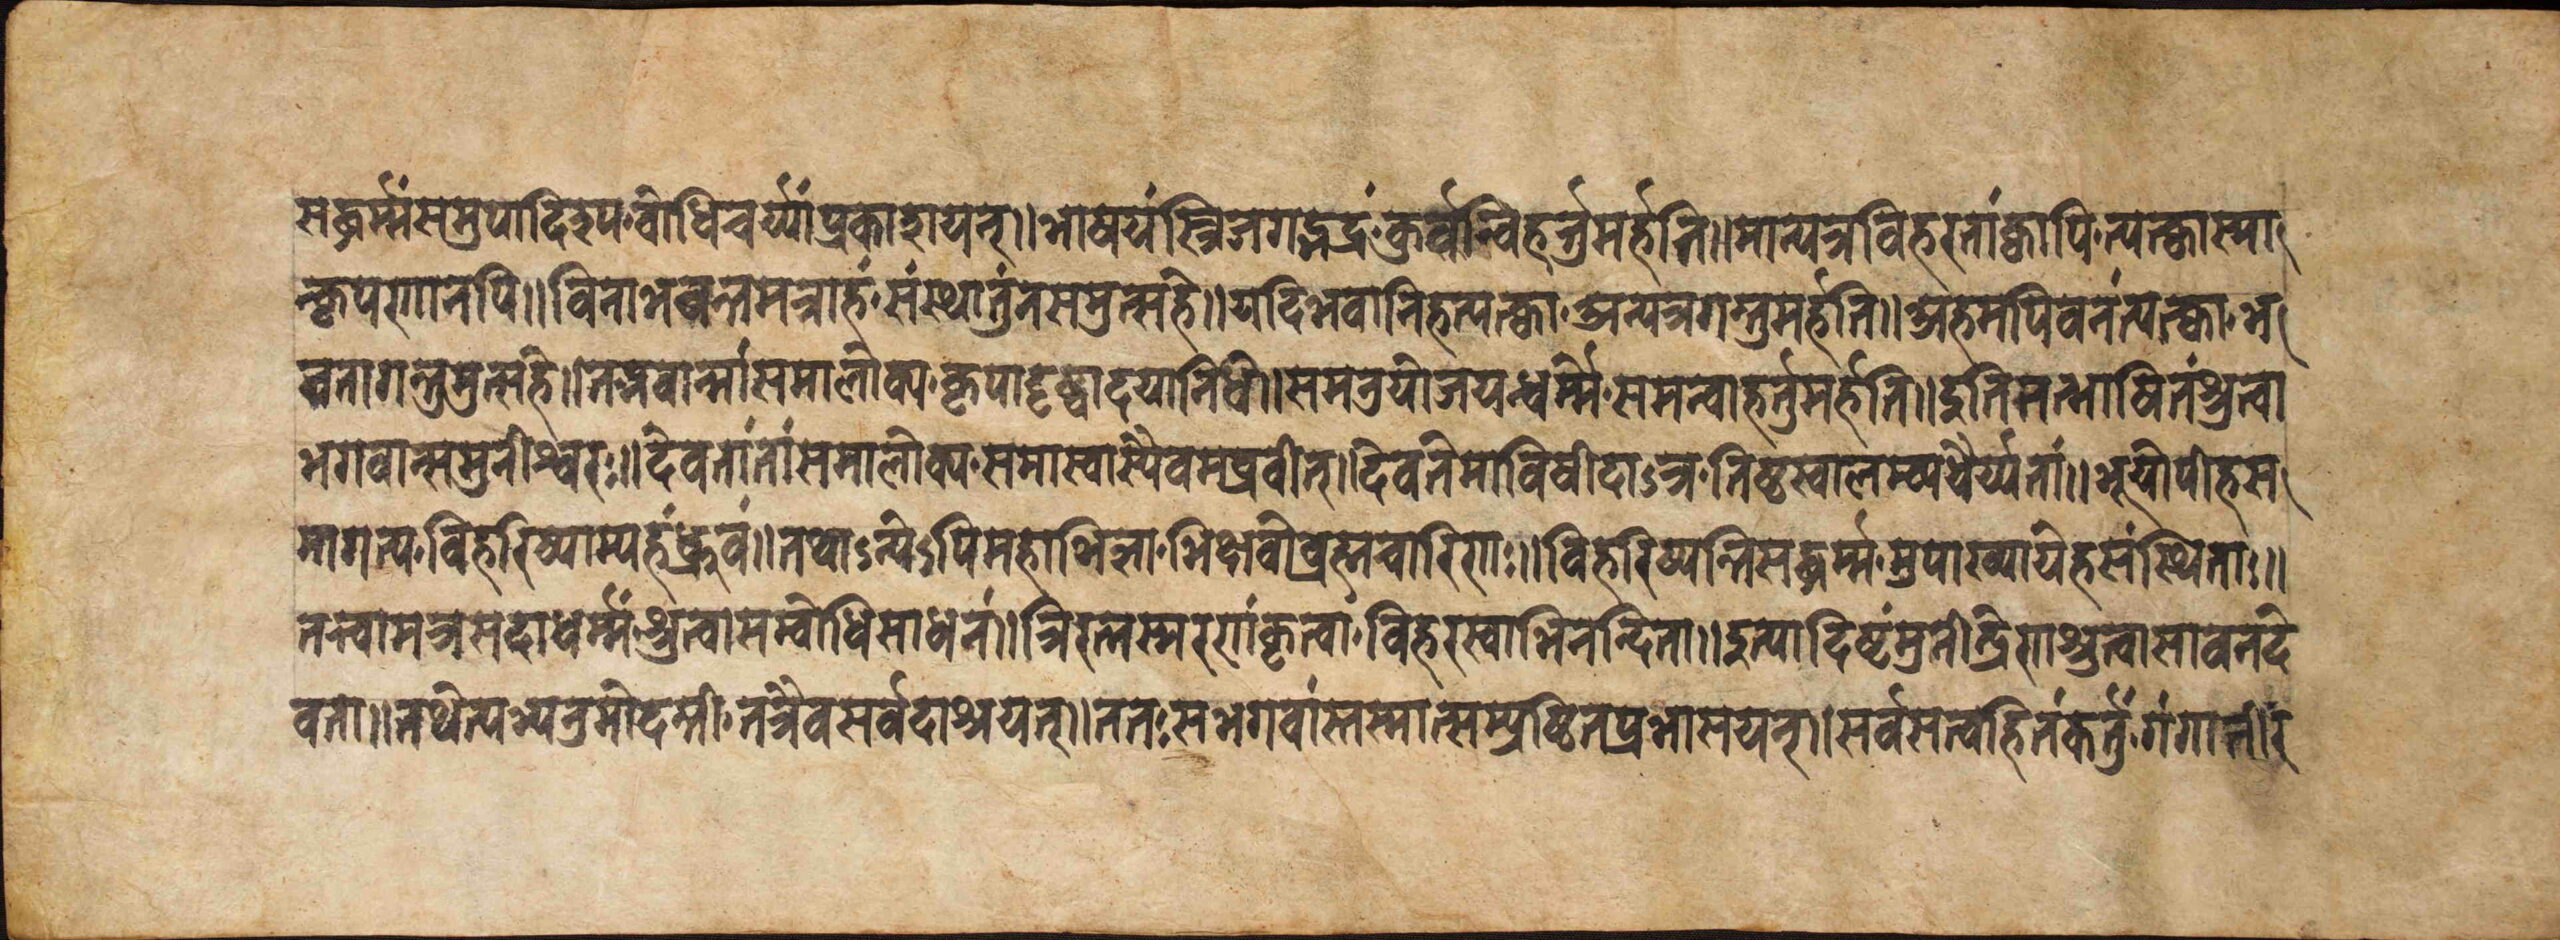 सद्धर्म्मंसमुपादिश्यबोधिचर्य्यांप्रकाशयन्॥भाषयंस्त्रिजगद्भद्रंकुर्वन्विहर्त्तुमर्हति॥मान्यत्रविहरतांक्वापित्यक्त्वास्मा
न्कृपरणानपि॥विनाभवन्तमत्राहंसंस्थातुंनसमुत्सहे॥यदिभवानिहत्यक्त्वाअन्यत्रगन्तुमर्हति॥अहमपिवनंत्यक्त्वाभ
वतागन्तुमुत्सहे॥तद्भवान्मांसमालोक्यकृपादृष्ट्वादयानिधे॥समनुयोजयन्धर्म्मेसमन्वाहर्त्तुमर्हति॥इतिसंभाषितंश्रुत्वा
भगवान्समुनीश्वरः॥देवतांतांसमालोक्यसमास्वास्यैवमब्रवीत्॥देवतेमाविषीदाऽत्रतिष्ठस्वालम्ब्यधैर्य्यतां॥भूयोपीहस
मागत्यविहरिष्याम्यहंध्रुवं॥तथाऽन्येऽपिमहाभिज्ञाभिक्षवोब्रह्मचारिणः॥विहरिष्यन्तिसद्धर्म्ममुपाख्यायेहसंस्थिताः॥
तत्त्वामत्रसदाधर्म्मंश्रुत्वासम्बोधिसाधनं॥त्रिरत्नस्मरणंकृत्वाविहरस्वाभिनन्दिता॥इत्यादिष्टंमुनीन्द्रेणश्रुत्वासावनदे
वता॥तथेत्यभ्यनुमोदन्तीतत्रैवसर्वदाश्रयत्॥ततःसभगवांस्तस्मात्सम्प्रष्ठितप्रभासयन्॥सर्वसत्वहितंकर्त्तुंगंगातीरं